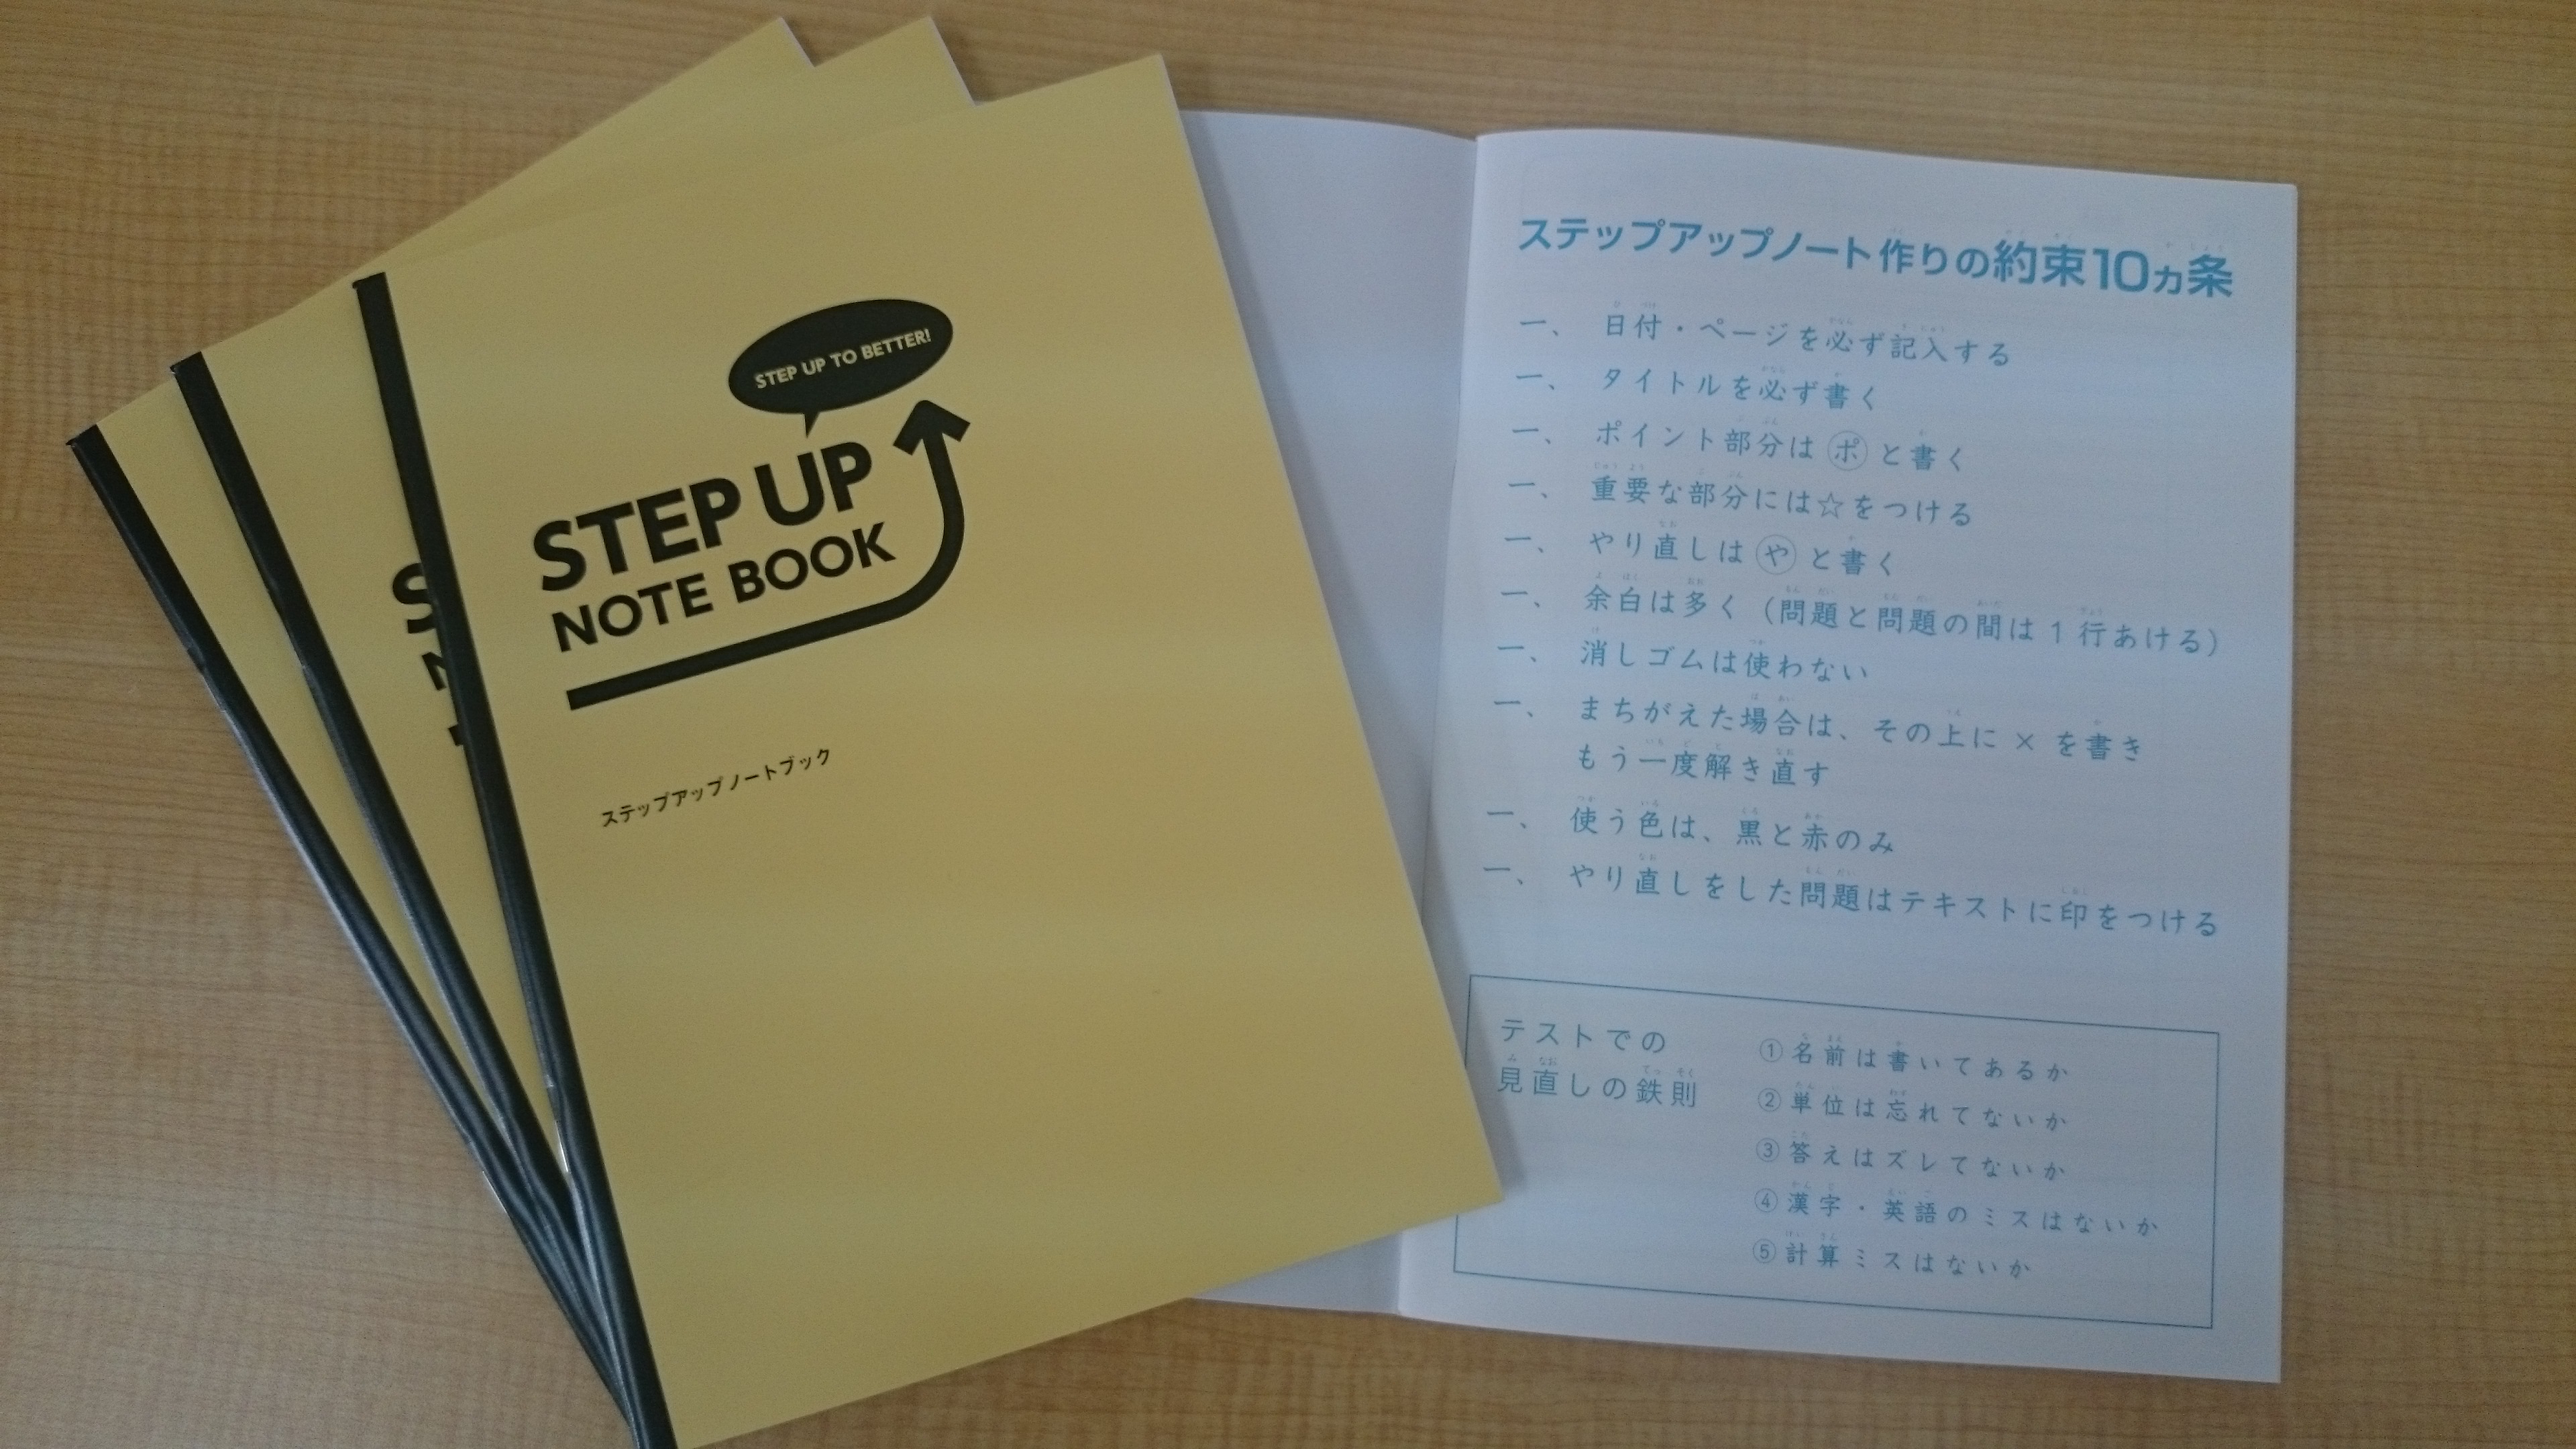 STEP UP TO BETTER!
STEP UP
NOTE BOOK
ステップアップノートブック
ステップアップノート作りの約束10ヵ条
一、 日付・ページを必ず記入する
一、 タイトルを必ず書く
一、 ポイント部分は ポ と書く
一、 重要な部分には☆をつける
一、 やり直しは や と書く
一、 余白は多く（問題と問題の間は1行あける）
一、 消しゴムは使わない
一、 まちがえた場合は、その上に × を書き
もう一度解き直す
一、 使う色は、黒と赤のみ
一、 やり直しをした問題はテキストに印をつける
テストでの
見直しの鉄則
①名前は書いてあるか
②単位は忘れてないか
③答えはズレてないか
④漢字・英語のミスはないか
⑤計算ミスはないか